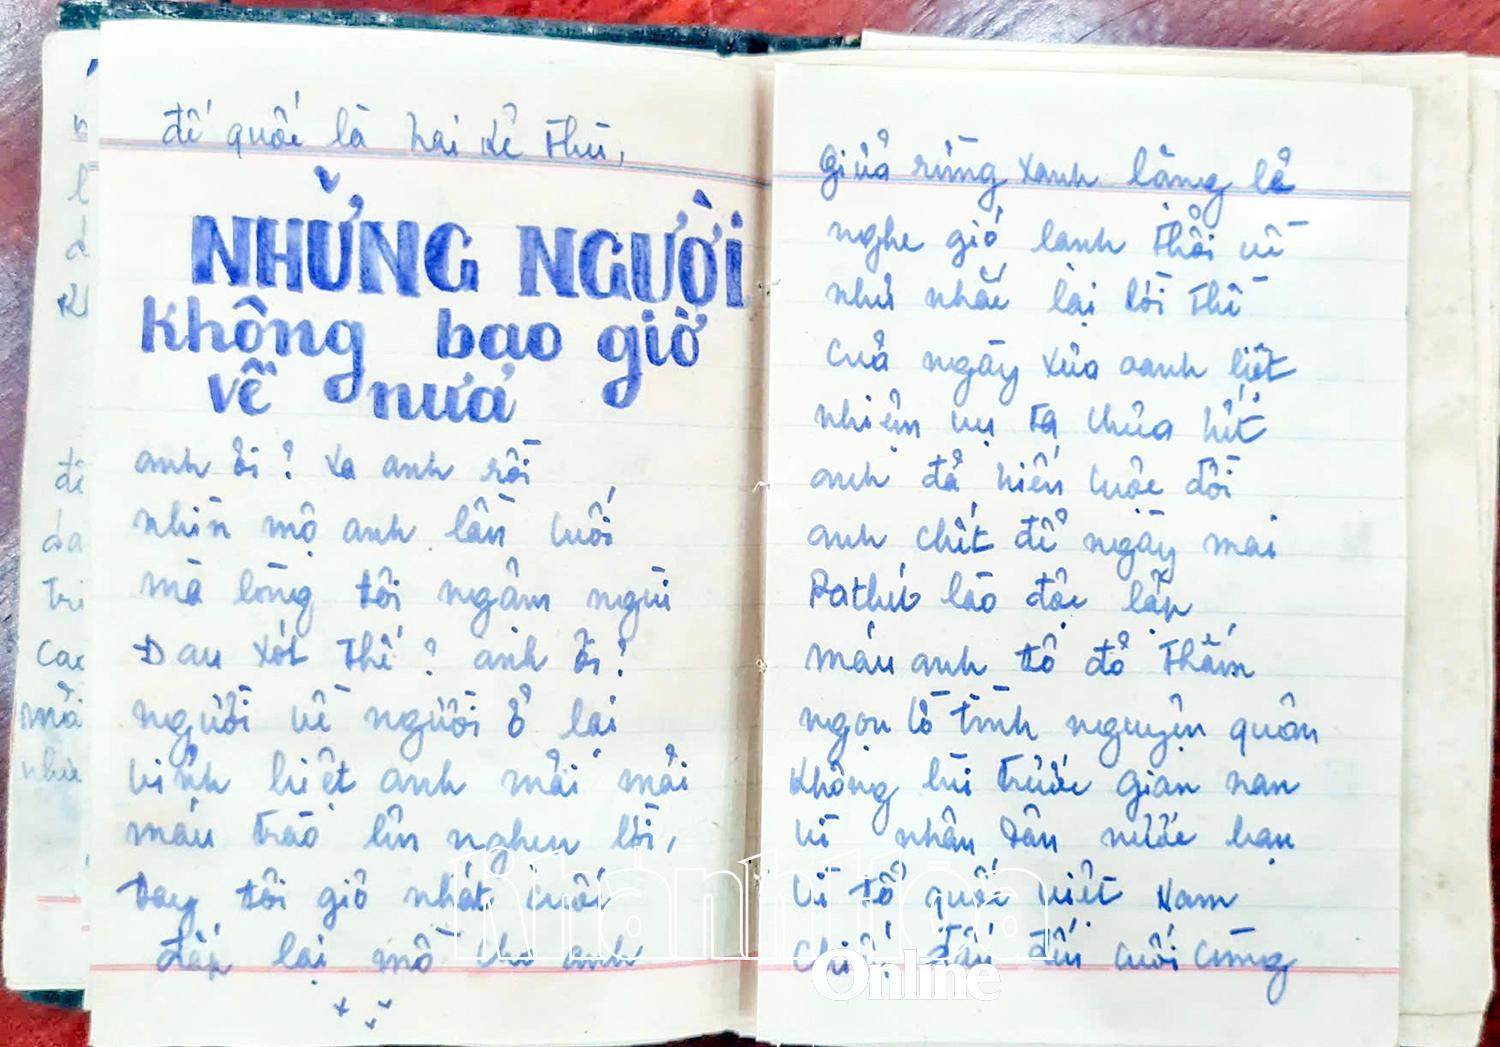 đế quốc là hai kẻ thù,
NHỮNG NGƯỜI
không bao giờ
về nưả
anh ơi? xa anh rồi
nhìn mộ anh lần cuối
mà lòng tôi ngậm ngùi
Đau xót thế? anh ơi?
người về người ở lại
vỉnh biệt anh mải mải
máu trào lên nghẹn lời,
Tay tôi giờ nhát cuối
đắp lại mồ cho anh
Giửa rừng xanh lặng lẻ
nghe gió lạnh thổi về
như nhắc lại lời thề
Cuả ngày xưa oanh liệt
nhiệm vụ ta chưa hết
anh đả hiến cuộc đời
anh chết để ngày mai
Pathét lào độc lập
máu anh tô đỏ thắm
ngọn cờ tình nguyện quân
Không lùi trước gian nan
vì nhân dân nước bạn
vì tổ quốc việt Nam
chiến đấu đến cuối cùng
Khánh Hòa
Online